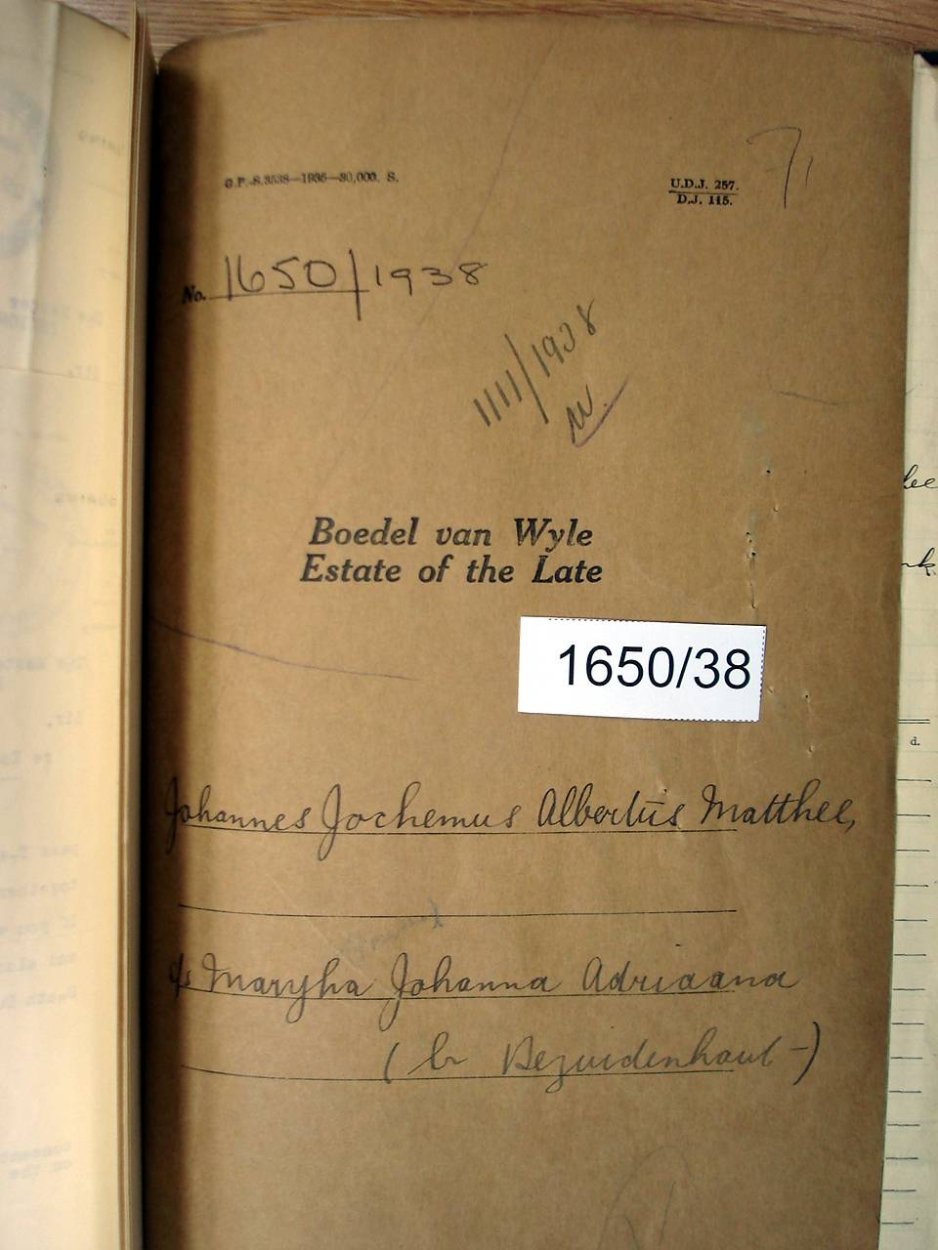 G.P.-S.3538—1936—30,000. S.
U.D.J. 257.
D.J. 115.
71
No. 1650/1938
1111/1938
Boedel van Wyle
Estate of the Late
1650/38
Johannes Jochemus Albertus Matthee,
Johanna Adriaana
(b Bezuidenhout-)
d.